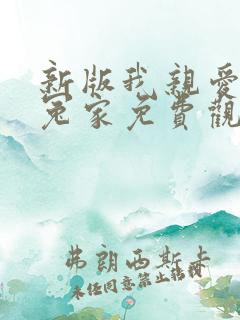 新版我親愛
冤家免費觀
弗朗西斯卡
未經同意禁止轉載